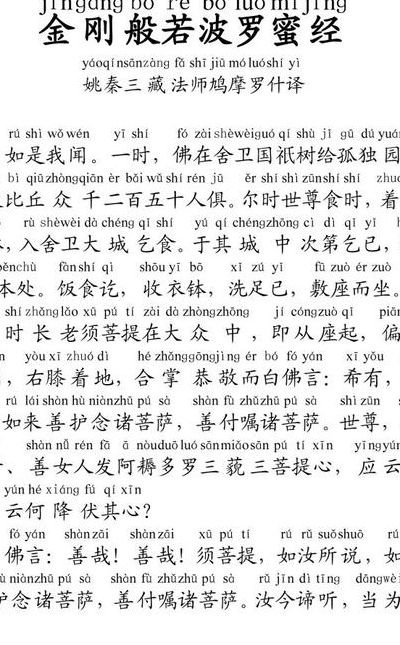 jīngāng bō rě bō luó mì jīng
金刚般若波罗蜜经
yáoqínsānzàng fǎ shī jiū mó luóshí yì
姚秦三藏法师鸠摩罗什译
rú shì wǒ wén yī shí fó zài shèwèiguó qí shù jǐ gū dú yuán
如是我闻。一时，佛在舍卫国祇树给孤独园
bì qiūzhòngqiān èr bǎi wǔ shí rén jū ěr shí shìzūnshí shí zhuó
比丘众千二百五十人俱。尔时世尊食时，着
rù shèwèi dà chéng qǐ shí yú qí chéngzhōng cì dì qǐ yǐ
，入舍卫大城乞食。于其城中次第乞已，
běnchù fànshí qì shōu yī bō xǐ zú yǐ fū zuò ér zuò
本处。饭食讫，收衣钵，洗足已，敷座而坐。
shí zhǎnglǎo xū pú tí zài dà zhòngzhōng jí cóngzuò qǐ piān
时长老须菩提在大众中，即从座起，偏
yòu xī zhuó dì hé zhǎnggōngjìng ér bó fó yán xī yǒu
，右膝着地，合掌恭敬而白佛言：希有，
rú lái shàn hù niànzhū pú sà shàn fù zhǔzhū pú sà shì zūn
如来善护念诸菩萨，善付嘱诸菩萨。世尊，
shàn nǚ rén fā ā nòuduō luó sānmiǎosān pú tí xīn yīngyún
、善女人发阿耨多罗三藐三菩提心，应云
yún hé xiáng fú qí xīn
云何降伏其心？
fó yán shànzāi shànzāi xū pú tí rú rǔ suǒshuō rú
佛言：善哉！善哉！须菩提，如汝所说，如
hù niànzhū pú sà shàn fù zhǔzhū pú sà rǔ jīn dì tīng dāngwèi
护念诸菩萨，善付嘱诸菩萨。汝今谛听，当为